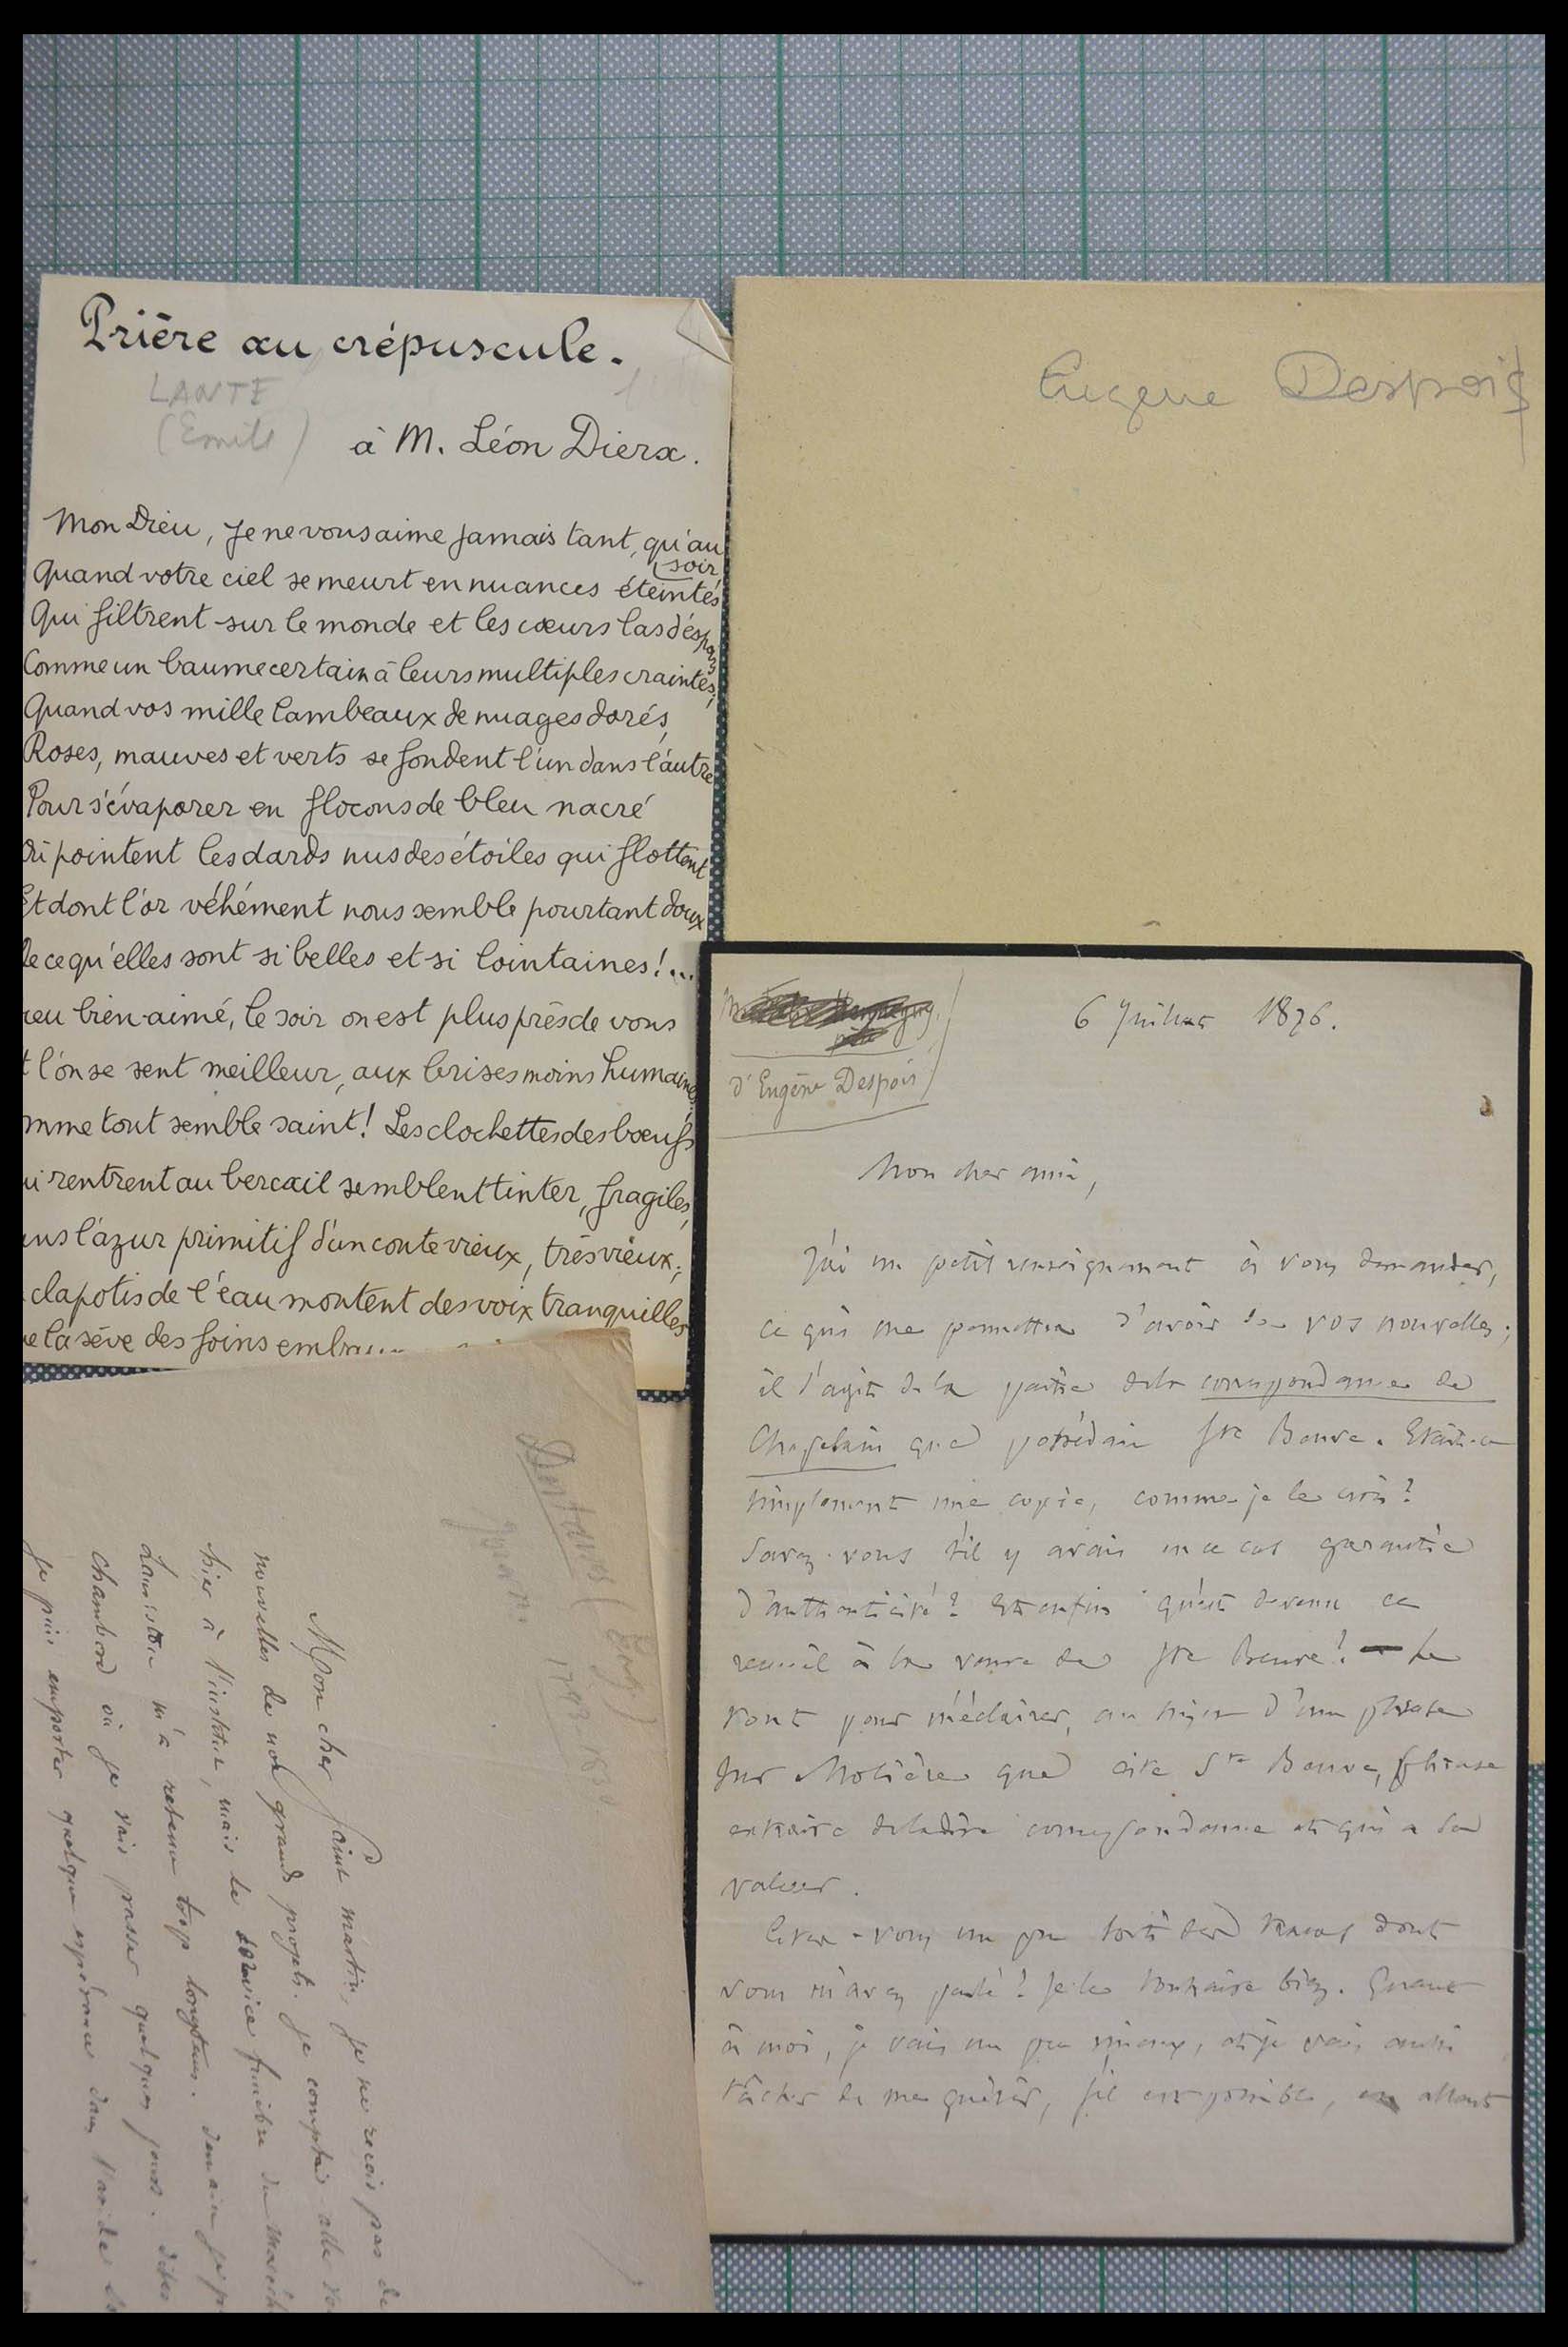 Prière au crépuscule.
LANTE
(Emile)
à M. Léon Dierx.
Mon Dieu, je ne vous aime jamais tant, qu'au
soir
Quand votre ciel se meurt en nuances éteintes
Qui filtrent sur le monde et les cœurs las d'espoirs
Comme un baume certain à leurs multiples craintes;
Quand vos mille lambeaux de nuages dorés,
Roses, mauves et verts se fondent l'un dans l'autre
Pour s'évaporer en flocons de bleu nacré
Où pointent les dards nus des étoiles qui flottent
Et dont l'or véhément nous semble pourtant doux
de ce qu'elles sont si belles et si lointaines!...
ieu bien-aimé, le soir on est plus près de vous
t l'on se sent meilleur, aux brises moins humaines.
mme tout semble saint! Les clochettes des bœufs
ui rentrent au bercail semblent tinter, fragiles,
ans l'azur primitif d'un conte vieux, très vieux;
clapotis de l'eau montent des voix tranquilles
e la sève des foins
Eugène Despois
6 Juillet 1876.
d'Eugène Despois
Mon cher ami,
J'ai un petit renseignement à vous demander,
ce qui me permettra d'avoir de vos nouvelles;
il s'agit de la partie de la correspondance de
Chapelain que possédait Ste Beuve. Etait-ce
simplement une copie, comme je le crois?
Savez-vous s'il y avait en ce cas garantie
d'authenticité? Et enfin qu'est devenu ce
recueil à la vente de Ste Beuve? — Le
tout pour m'éclairer, au sujet d'une phrase
sur Molière que cite Ste Beuve, phrase
extraite de ladite correspondance et qui a sa
valeur.
Etes-vous un peu sorti des tracas dont
vous m'avez parlé? Je le souhaite bien. Quant
à moi, je vais un peu mieux, et je vais aussi
tâcher de me guérir, s'il est possible, en allant
Mon cher Saint martin, je ne reçois pas de
nouvelles de nos grands projets. je comptais
hier à l'institut, mais le service funèbre du
Lauriston m'a retenu trop longtems. demain je
Chambord où je vais passer quelques jours. dites
je puis emporter quelque espérance dans